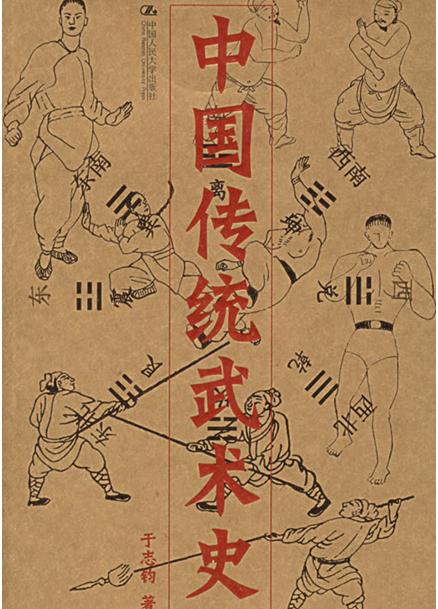 中国人民大学出版社
China Renmin University Press
中国传统武术史
东南
离
西南
巽
坤
东
震
兑
西
艮
乾
东北
西北
坎
于志钧 著